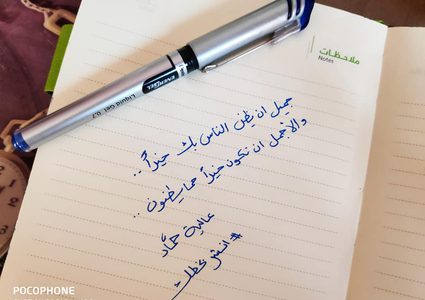 ملاحظات
Notes
ENERGEL
Liquid Gel 0.7
جميل ان يظن الناس بك خيراً ..
والأجمل ان تكون خيراً مما يظنون ..
عالية حمَّاد
#انشر_بخطك
POCOPHONE